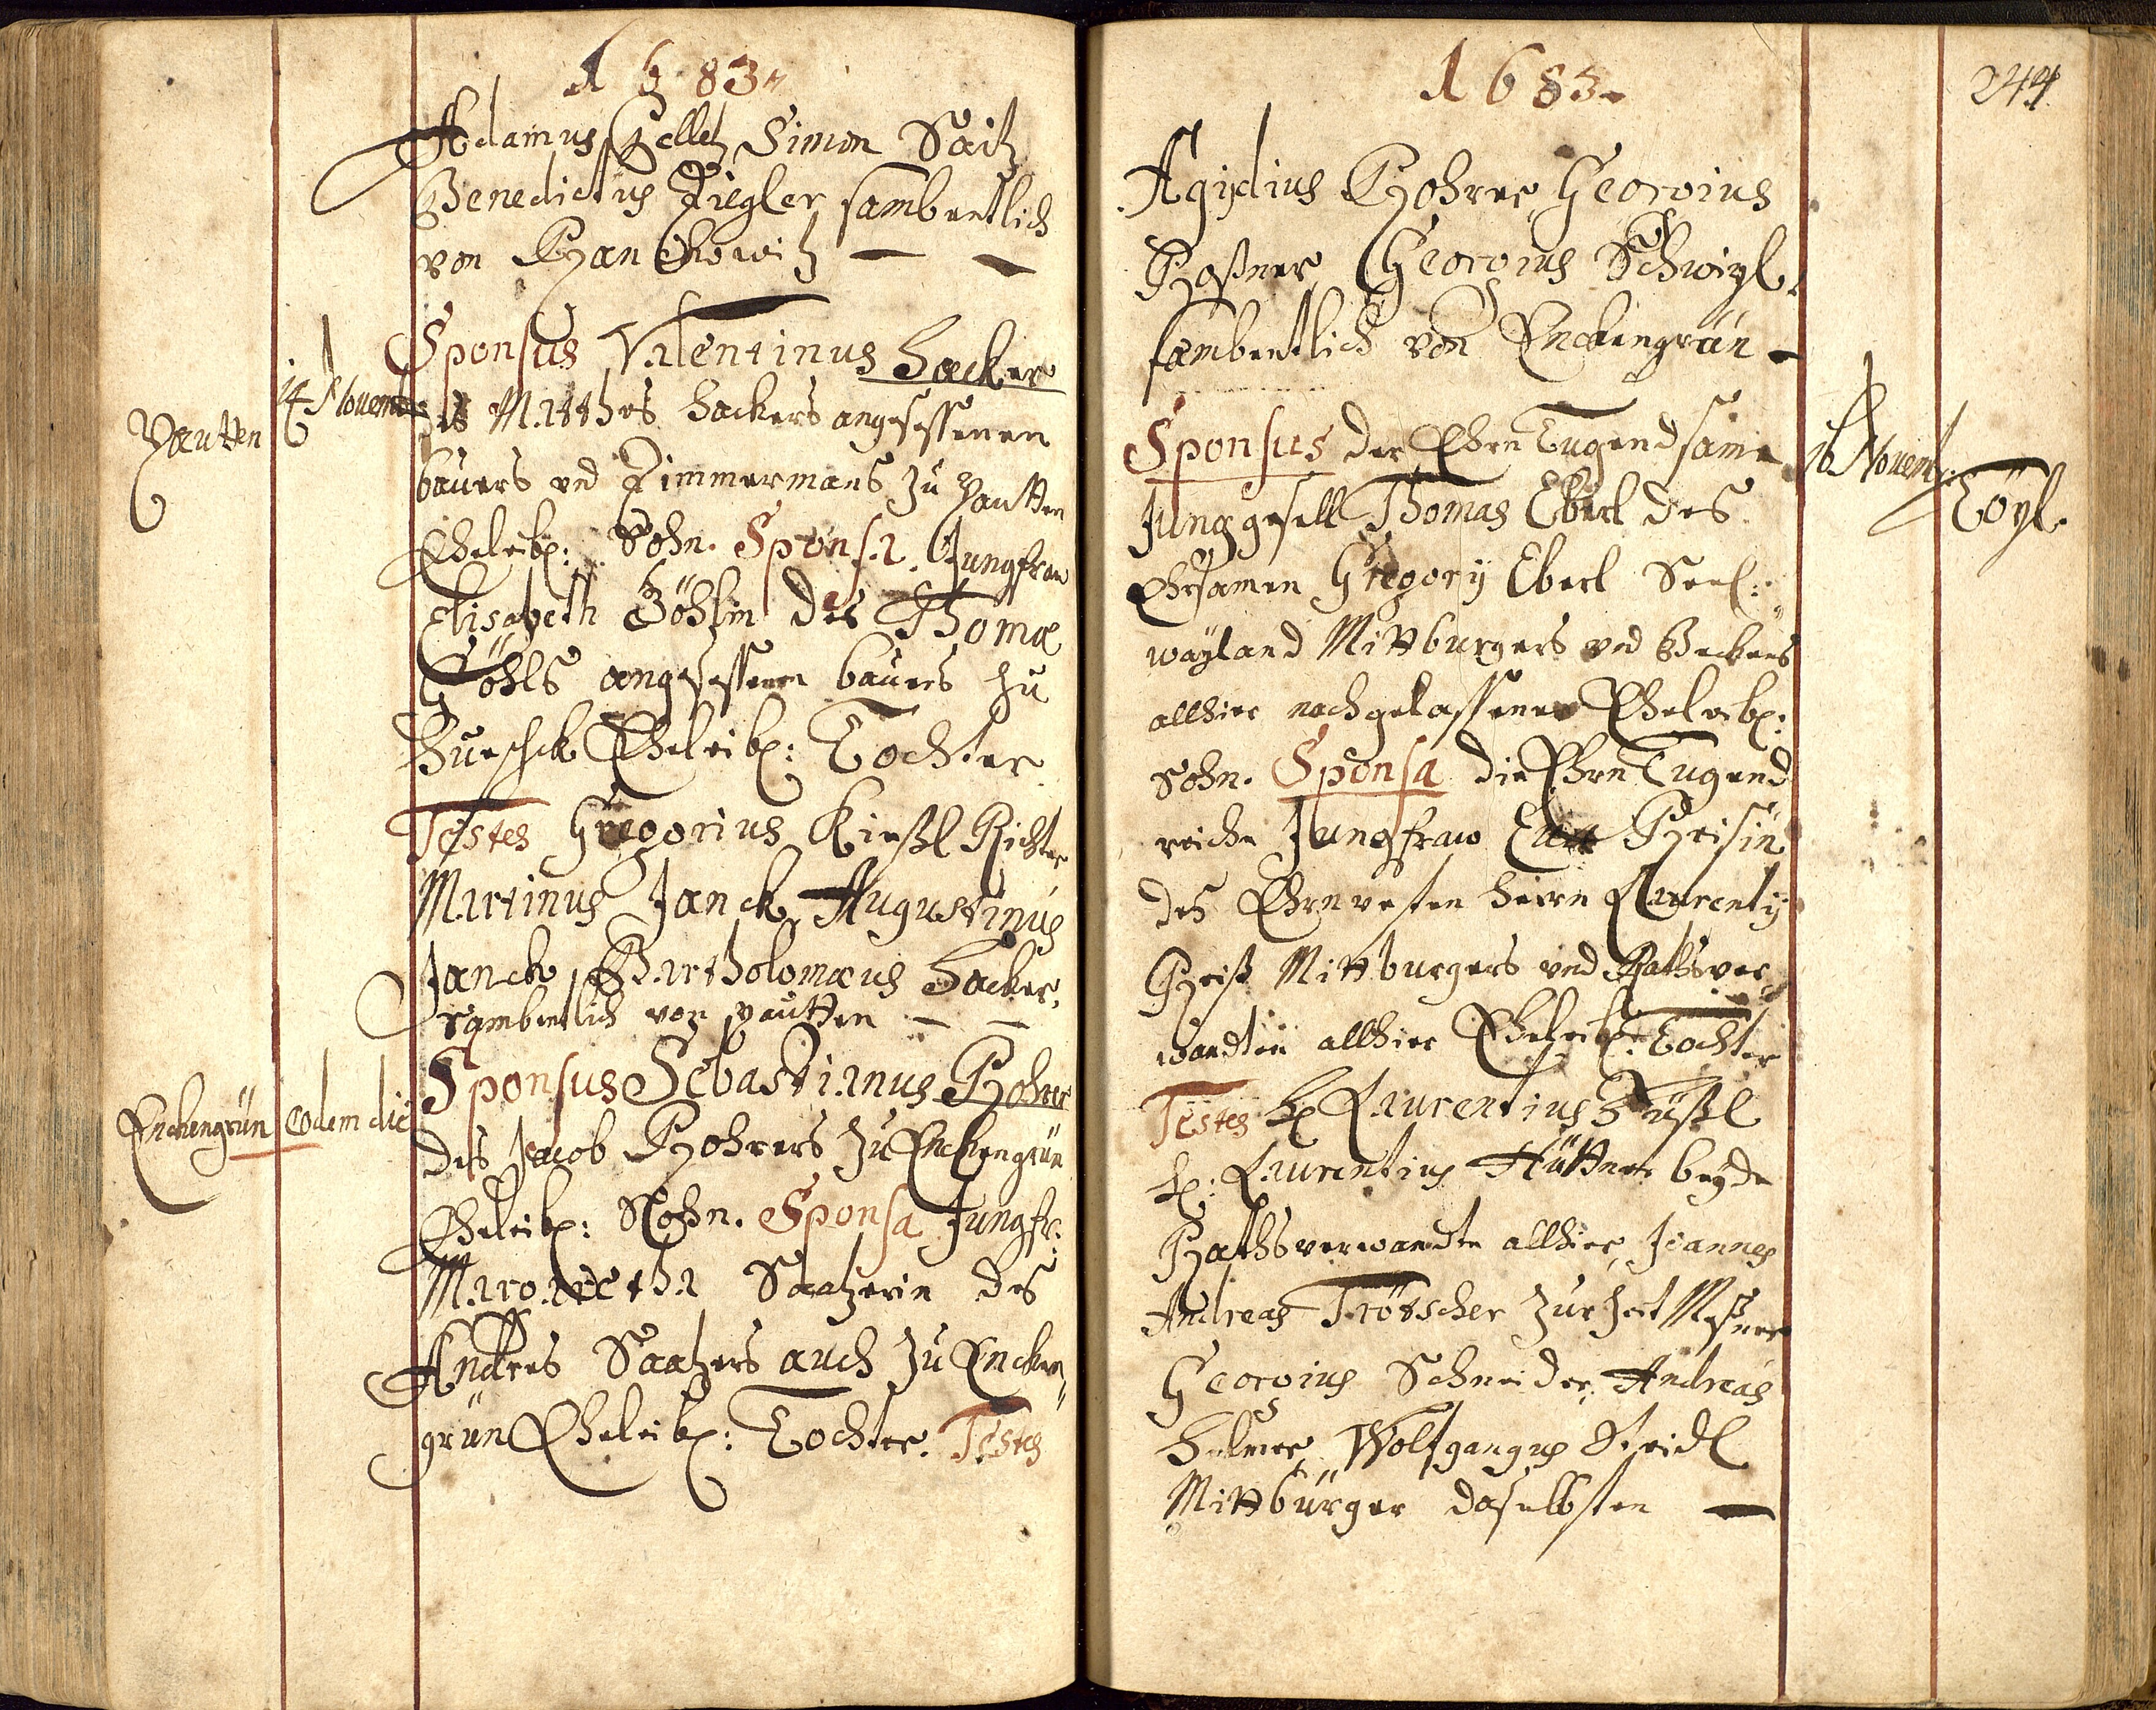 1683.
Adamus Helletz Simon Saitz
Benedictus Ziegler sambentlich
von Hanckowitz
Sponsus Valentinus Hacker
14 Novemb:
Hautten
des Matthes Hackers angesessenen
bauers vnd Zimmermans zu Hautten
Eheleibl: Sohn. Sponsa Jungfraw
Elisabeth Göhlin des Thomæ
Göhls angesessenen bauers zu
Eheleibl: Tochter
Testes Gregorius Kießl Richter
Martinus Janck, Augustinus
Janck, Bartholomæus Hacker,
sambentlich von Hautten
Sponsus Sebastianus Rohrer
Enckengrün eodem die
des Jacob Rohrers zu Enckengrün
Eheleibl: Sohn. Sponsa Jungfr:
Margaretha Saatzerin des
Andres Saatzers auch zu Encken"
grün Eheleibl: Tochter. Testes
1683.
244.
Ægidius Rohrer, Georgius
Roßner, Georgius Schwigl.
sambentlich von Enckengrün
Sponsus der Ehrn Tugendsame
16 Novemb:
Töpl.
Junggesell Thomas Eberl des
Ehrsamen Gregorÿ Eberl Seel:
wayland Mittburgers vnd Beckens
allhier nachgelassener Eheleibl:
Sohn. Sponsa die Ehrn Tugend
reiche Jungfraw Eva Reisin
des Ehrnvesten Herrn Laurentÿ
Reiß Mittburgers vnd Rathsver,,
wandten allhier Eheleibl: Tochter
Testes H: Laurentius Füßl
H: Laurentius Hüttner beyde
Rathsverwandte allhier, Joannes
Andreas Trötscher zur Zeit Meßner
Georgius Schneider, Andreas
Wolfgangus Steidl
Mittbürger daselbsten